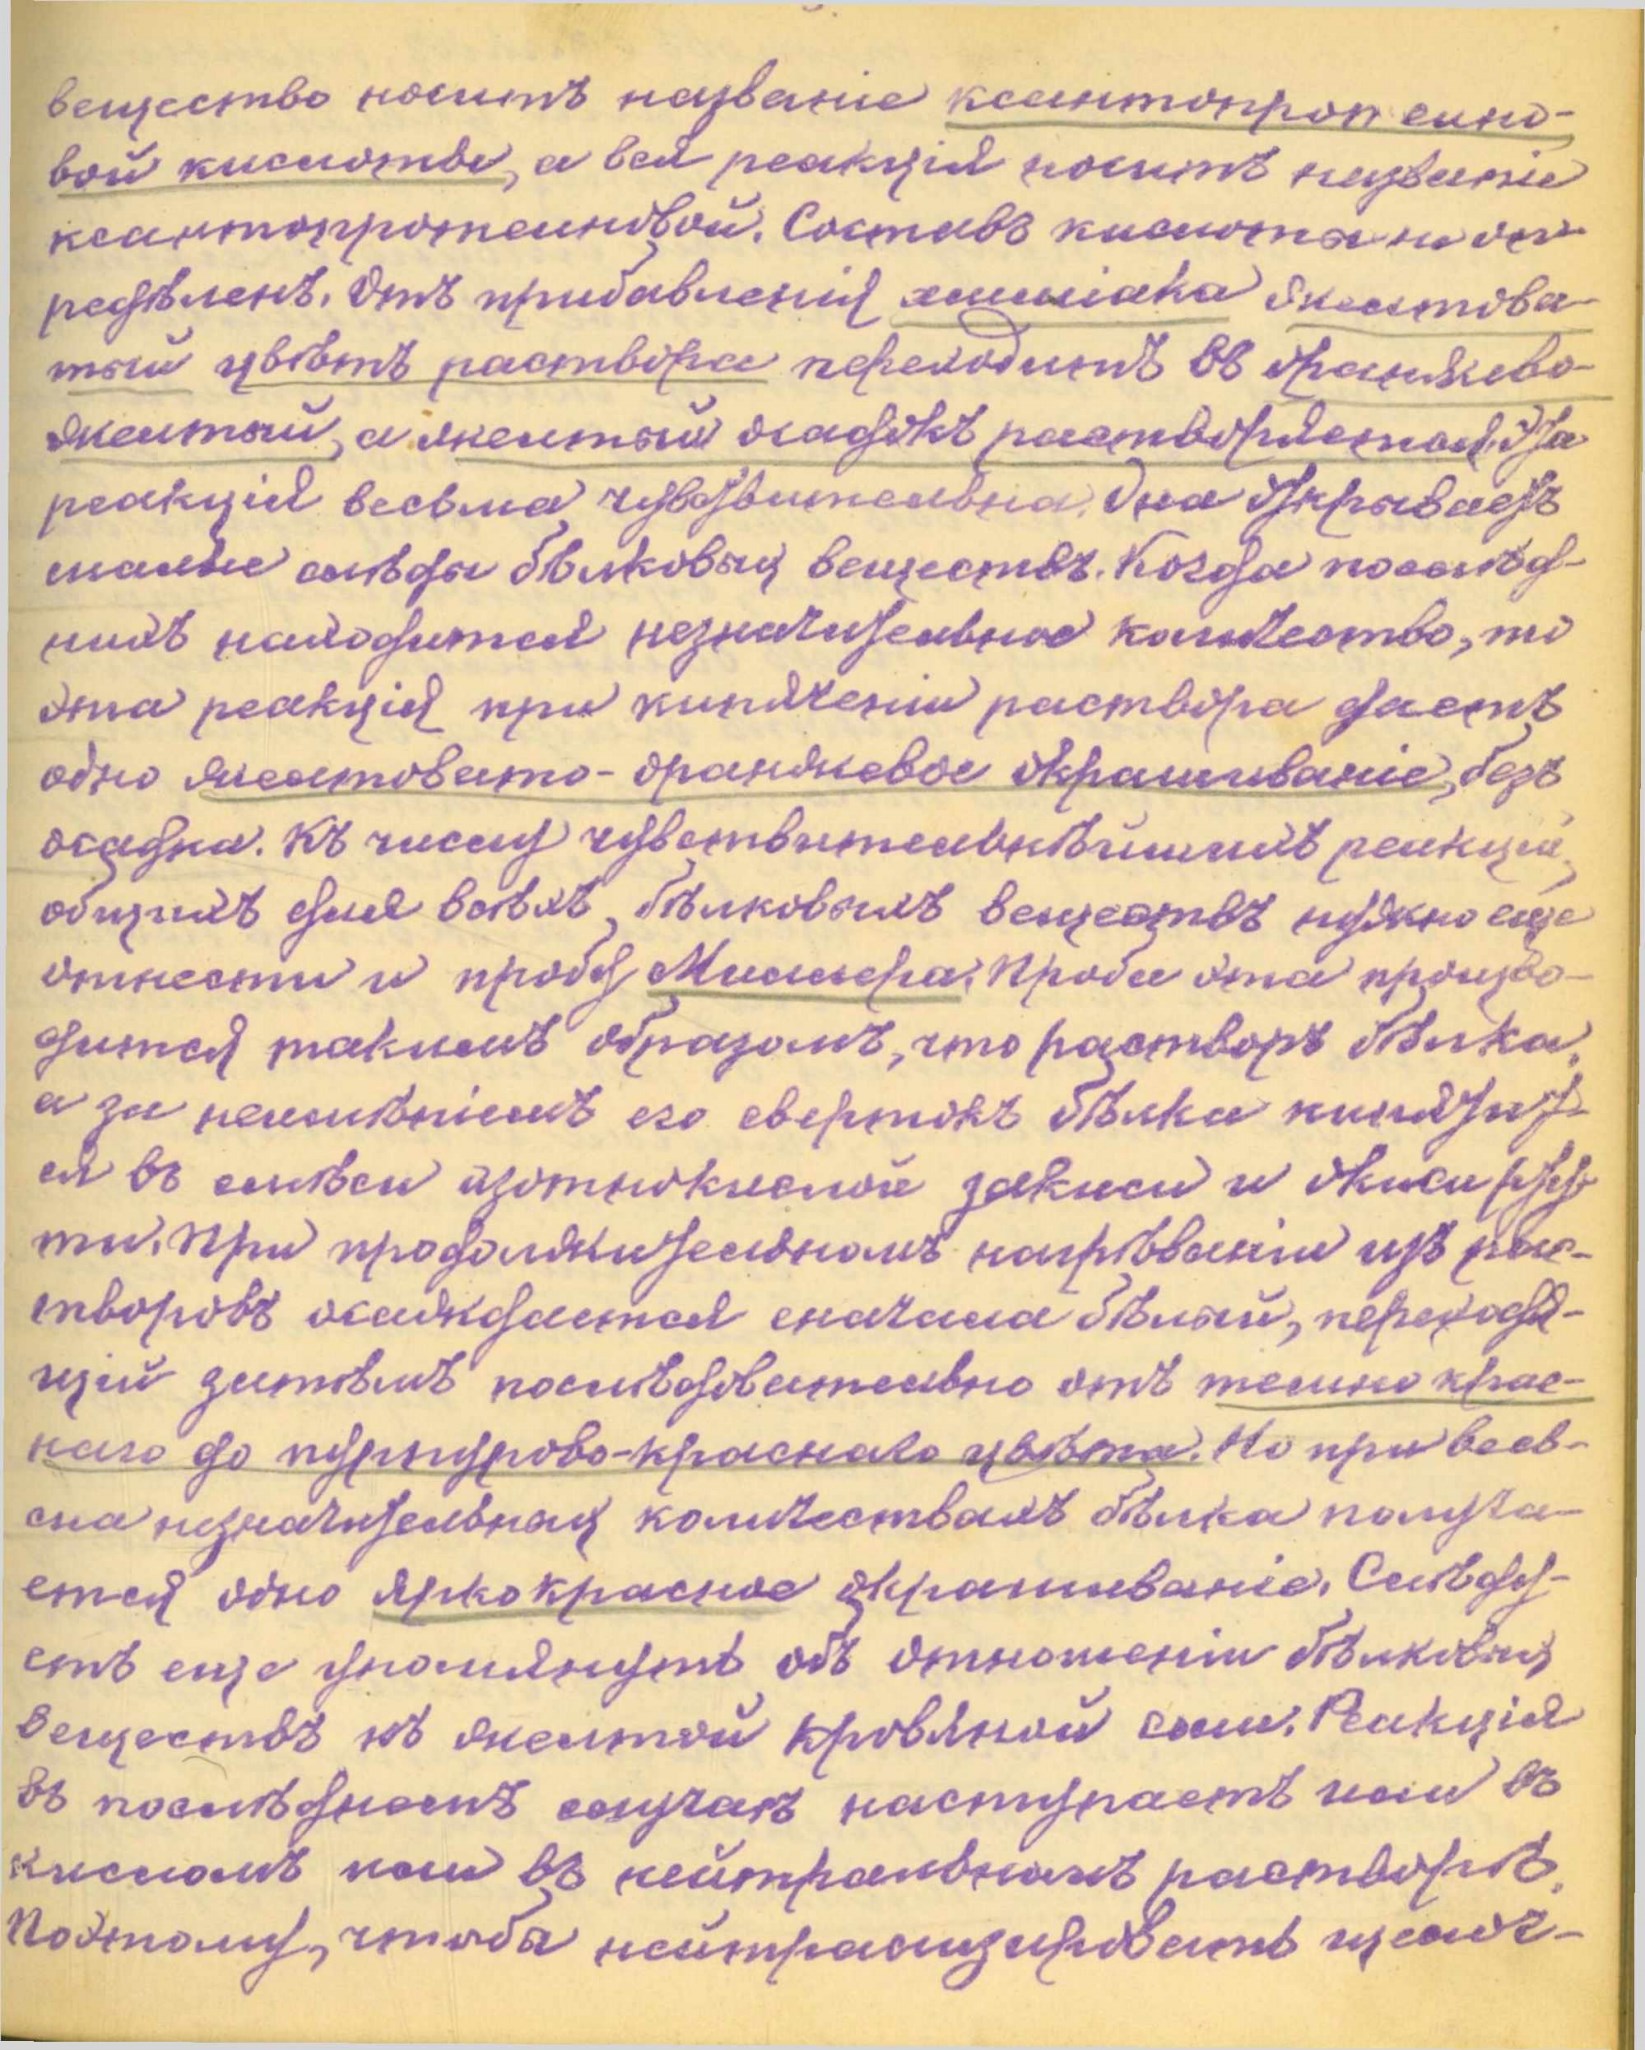 вещество носитъ названіе ксантопротеино-
вой кислоты, а вся реакція носитъ названіе
ксантопротеиновой. Составъ кислоты не оп-
редѣленъ. Отъ прибавленія амміака желтова-
тый цвѣтъ раствора переходитъ въ оранжево-
желтый, а желтый осадокъ растворяется. Эта
реакція весьма чувствительна. Она открываетъ
малые слѣды бѣлковых веществъ. Когда послѣд-
нихъ находится незначительное количество, то
эта реакція при кипяченіи раствора даетъ
одно желтовато-оранжевое окрашиваніе, безъ
осадка. Къ числу чувствительнѣйшихъ реакцій,
общихъ для всѣхъ бѣлковыхъ веществъ нужно еще
отнести и пробу Миллера. Проба эта произво-
дится такимъ образомъ, что растворъ бѣлка,
а за неимѣніемъ его свертокъ бѣлка кипятит-
ся въ смѣси азотнокислой закиси и окиси рту-
ти. При продолжительномъ нагрѣваніи изъ рас-
творовъ осаждается сначала бѣлый, переходя-
щій затѣмъ послѣдовательно отъ темно крас-
наго до пурпурово-краснаго цвѣта. Но при весь-
ма незначительных количествахъ бѣлка получа-
ется одно яркокрасное окрашиваніе. Слѣду-
етъ еще упомянуть объ отношеніи бѣлковых
веществъ къ желтой кровяной соли. Реакція
въ послѣднемъ случаѣ наступаетъ или въ
кисломъ или въ нейтральномъ растворѣ.
Поэтому, чтобы нейтрализировать щелоч-